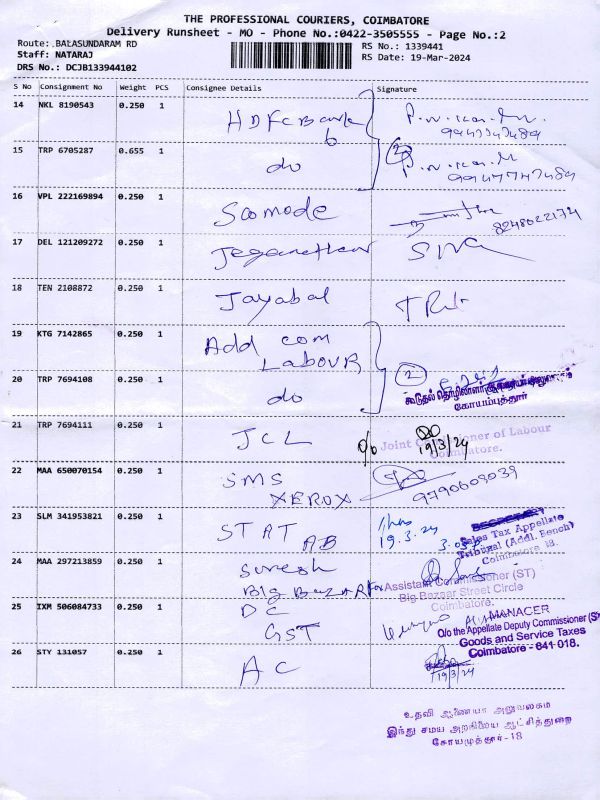 THE PROFESSIONAL COURIERS, COIMBATORE
Delivery Runsheet - MO - Phone No.:0422-3505555 - Page No.:2
Route: .BALASUNDARAM RD
Staff: NATARAJ
DRS No.: DCJB133944102
RS No.: 1339441
RS Date: 19-Mar-2024
S No Consignment No Weight PCS Consignee Details Signature
14 NKL 8190543 0.250 1 HDFC Bank
15 TRP 6705287 0.655 1 do 2
16 VPL 222169894 0.250 1 8248022174
17 DEL 121209272 0.250 1
18 TEN 2108872 0.250 1 Jayabal
19 KTG 7142865 0.250 1 Add com
LABOUR
20 TRP 7694108 0.250 1 do 2
கூடுதல் தொழிலாளர்
கோயம்புத்தூர்
21 TRP 7694111 0.250 1 JCL 19/3/24
Joint Commissioner of Labour
Coimbatore.
22 MAA 650070154 0.250 1 SMS
XEROX 9790609039
23 SLM 341953821 0.250 1 STAT
AB 19.3.24
Sales Tax Appellate
Tribunal (Addl. Bench)
Coimbatore 18.
24 MAA 297213859 0.250 1 Suresh
Big BAZAR
Assistant Commissioner (ST)
Big Bazaar Street Circle
Coimbatore.
25 IXM 506084733 0.250 1 DC
GST
MANAGER
O/o the Appellate Deputy Commissioner (ST)
Goods and Service Taxes
Coimbatore - 641 018.
26 STY 131057 0.250 1 AC 19/3/24
உதவி ஆணையர் அலுவலகம்
இந்து சமய அறநிலைய ஆட்சித்துறை
கோயமுத்தூர்-18